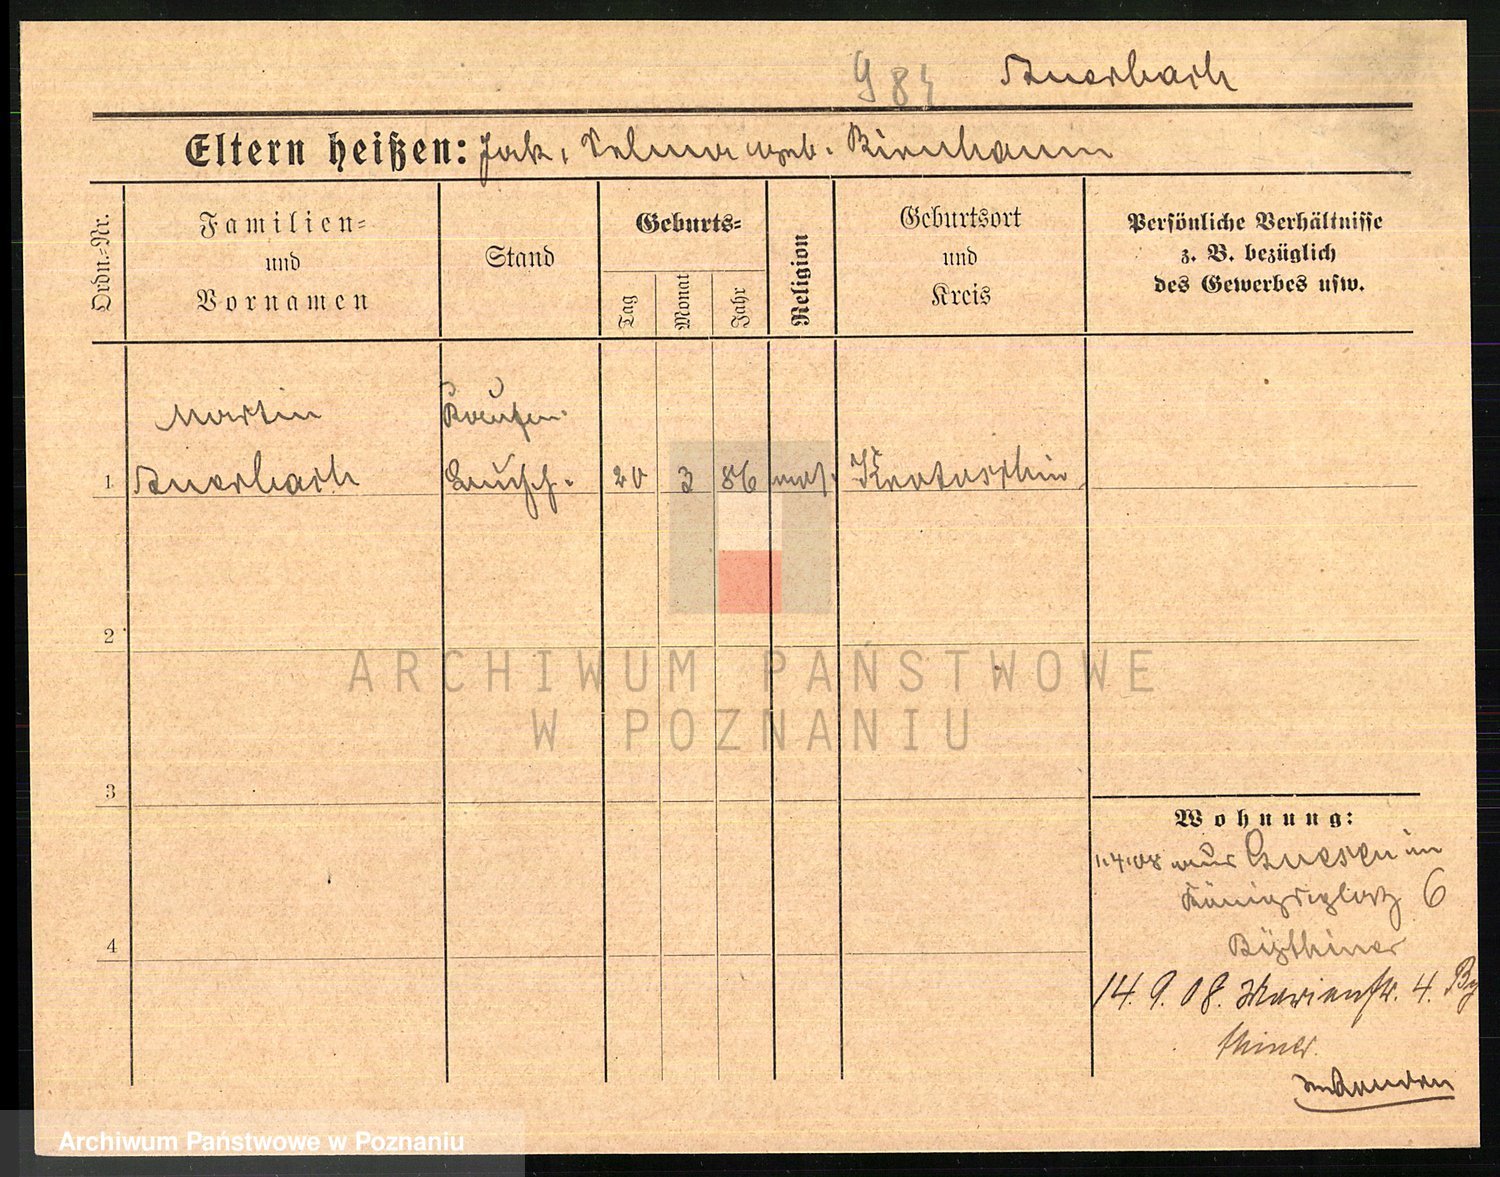 984 Auerbach
Eltern heißen: Jak, Selma geb. Birnbaum
Ordn.-Nr.
Familien-
und
Vornamen
Stand
Geburts-
Tag
Monat
Jahr
Religion
Geburtsort
und
Kreis
Persönliche Verhältnisse
z. B. bezüglich
des Gewerbes usw.
Martin
1 Auerbach 20 3 86 mos. Krotoschin
2
ARCHIWUM PAŃSTWOWE
W POZNANIU
3
Wohnung:
1.4.08 aus Gnesen in
Königsplatz 6
Bythiner
4
14.9.08. Marienstr. 4. By
thiner.
Archiwum Państwowe w Poznaniu